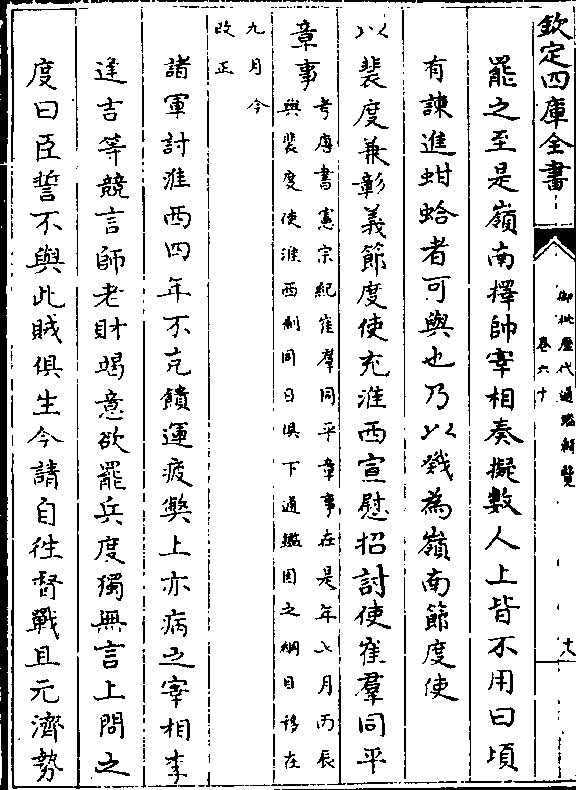 欽定四庫全書
御批歷代通鑑輯覽
卷六十
罷之至是嶺南擇帥宰相奏擬數人上皆不用曰頃
有諫進蚶蛤者可與也乃以戣為嶺南節度使
以裴度兼彰義節度使充淮西宣慰招討使崔羣同平
章事
考唐書憲宗紀崔羣同平章事在是年七月丙辰
與裴度使淮西制同日俱下通鑑因之綱目移在
九月今
改正
諸軍討淮西四年不克饋運疲弊上亦病之宰相李
逢吉等競言師老財竭意欲罷兵度獨無言上問之
度曰臣誓不與此賊俱生今請自往督戰且元濟勢